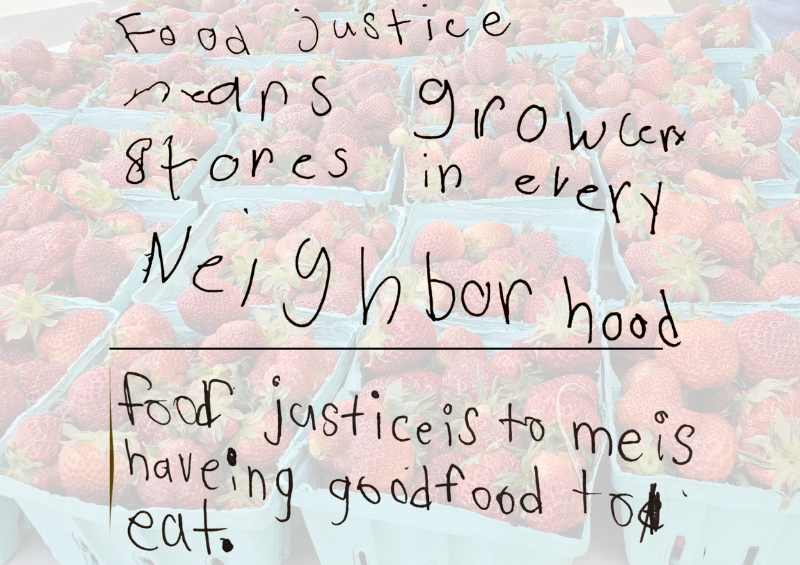 Food justice
means growcerx
stores in every
Neighbor hood
food justice is to me is
haveing good food to
eat.